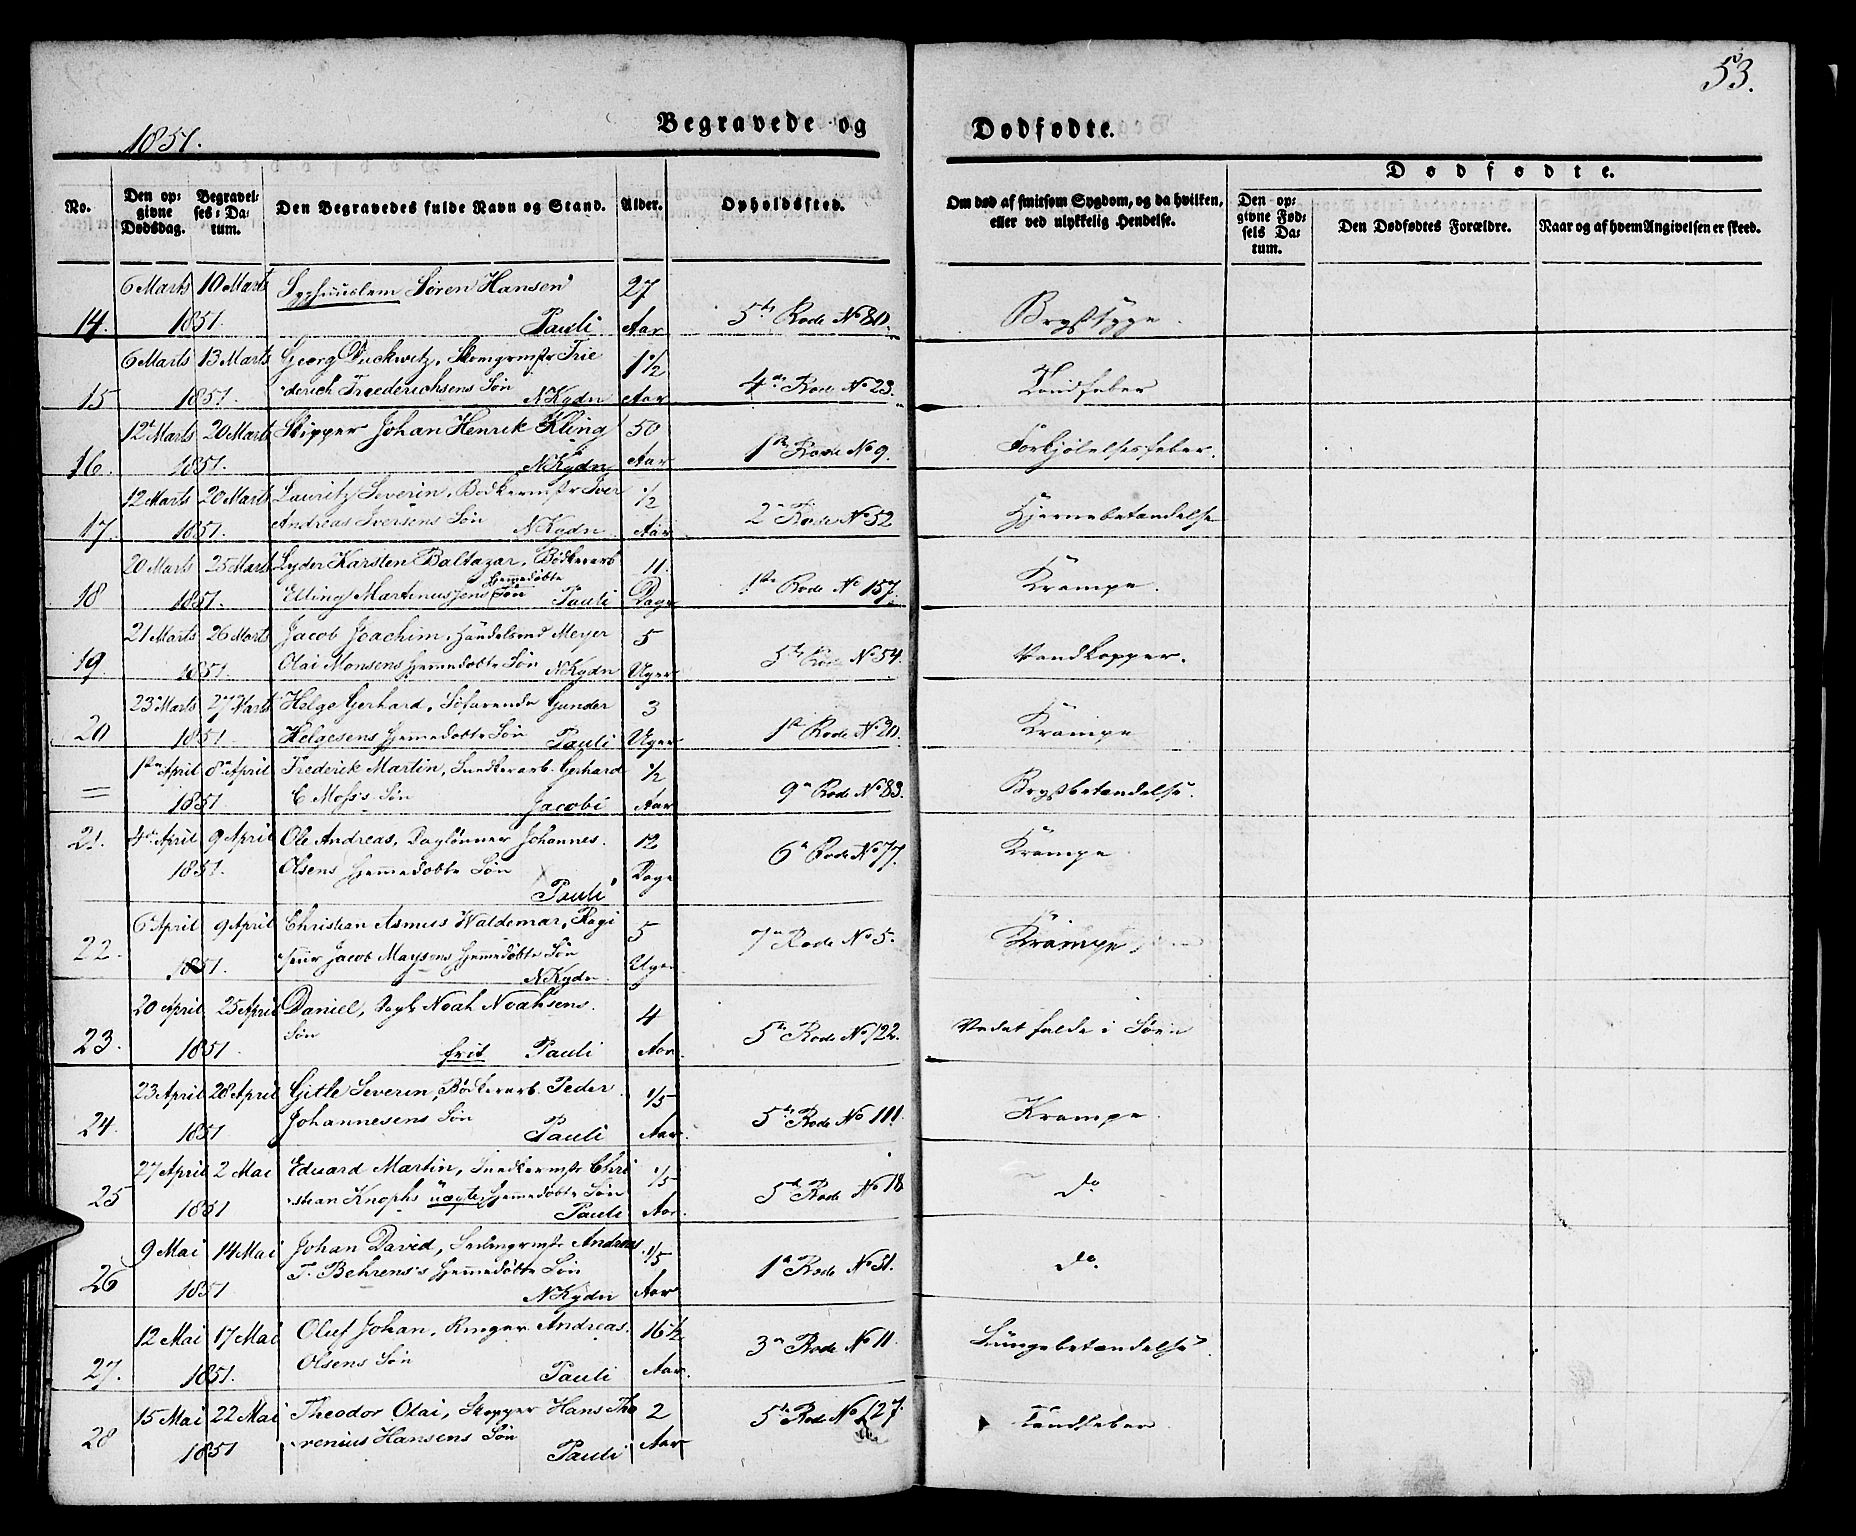 1851.
Begravede og
Dødfødte.
53.
No.
Den opgivne Dødsdag.
Begravelses-Datum.
Den Begravedes fulde Navn og Stand.
Alder.
Opholdssted.
Om død af smitsom Sygdom, og da hvilken, eller ved ulykkelig Hendelse.
Dødfødte.
Den opgivne Fødsels Datum.
Den Dødfødtes Forældre.
Naar og af hvem Angivelsen er skeed.
6 Marts 10 Marts Sygehuuslem Søren Hansen 27
14. 1851. Pauli Aar 5te Rode No 80. Brystsyge.
6 Marts 13 Marts Georg Duckwitz, Skomgrmstr Frie 1 1/2
15 1851. derich Friederichsens Søn N Kydn Aar 4de Rode No 23. Tandfeber
12t Marts 20 Marts Skipper Johan Henrik Kling 50
16. 1851. N Kydn Aar 1ste Rode No 9. Forkjølelsesfeber.
12 Marts 20 Marts Lauritz Severin, Bødkermstr Iver 1/2
17. 1851. Andreas Iversens Søn N Kydn Aar 2 Rode No 52 Hjernebetændelse
20 Marts 25 Marts Lyder Karsten Baltazar, Bødkerarb 11
18 1851. Elling Martinussens hjemedøbte Søn Pauli Dage 1ste Rode No 157. Krampe.
21 Marts 26 Marts Jacob Joachim, Handelsmd Meyer 5
19. 1851. Olai Monsens hjemedøbte Søn N Kydn Uger 5te Rode No 54. Vandkopper.
23 Marts 27 Marts Helge Gerhard, Søfarende Gunder 3
20 1851. Helgesens hjemedøbte Søn Pauli Uger 1st Rode No 30. Krampe
1ste April 8 April Frederik Martin, Snedkerarb. Gerhard 1/2
= 1851. C Moss's Søn Jacobi Aar 9 Rode No 83. Brystbetændelse.
21. 4de April 9 April Ole Andreas, Daglønner Johannes. 12
1851. Olsens hjemmedøbte Søn Pauli Dage 6 Rode No 77. Krampe
6 April 9 April Christian Asmus Waldemar, Regi 5
22. 1851. seur Jacob Maysens hjemmedøbte Søn N Kydn. Uger 7 Rode No 5. Krampe
20 April 25 April Daniel, Dagl. Noah Noahsens. 4
23. 1851. Søn frit Pauli Aar. 5te Rode No 122. Vedat falde i Søen
23 April 28 April Gitle Severin, Bødkerarb. Peder 1/5
24. 1851. Johannesens Søn Pauli Aar. 5te Rode No 111. Krampe.
27 April 2 Mai Eduard Martin, Snedkermstr Chri 1/5
25 1851 stian Knophs uægte hjemedøbte Søn Pauli Aar. 5te Rode No 18 do
9 Mai 14 Mai Johan David, Seilmgrmstr Andreas 1/5
26 1851. T. Behrens's hjemmedøbte Søn N Kydn Aar 1 Rode No 51. do.
12 Mai 17 Mai Oluf Johan, Ringer Andreas. 16 1/2
27. 1851. Olsens Søn Pauli Aar. 3 Rode No 11. Lungebetændelse.
15 Mai 22 Mai Theodor Olai, Skipper Hans Tho 2
28 1851 renius Hansens Søn Pauli Aar 5te Rode No 127. Tandfeber